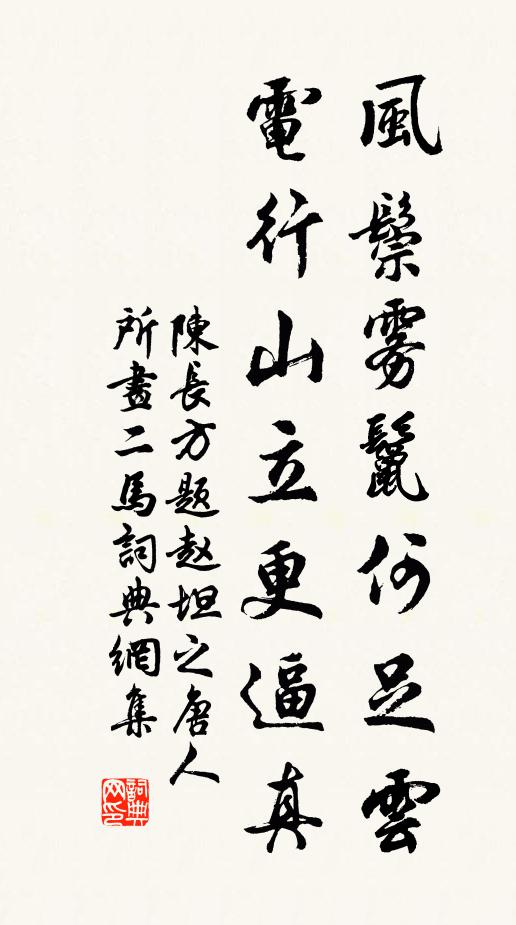 風鬃雾鬣何足雲
電行山立更逼真
陳長方題赵坦之唐人
所畫二馬詞典網集
詞典网印